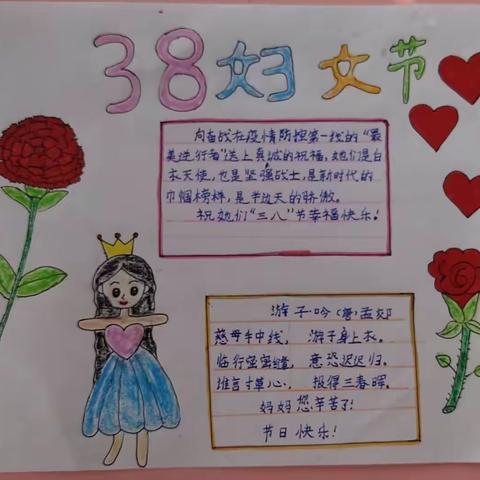 38妇女节
向奋战在疫情防控第一线的“最
美逆行者”送上真诚的祝福，她们是白
衣天使，也是坚强战士，是新时代的
巾帼榜样，是半边天的骄傲。
祝她们“三八”节幸福快乐！
游子吟（唐）孟郊
慈母手中线， 游子身上衣。
临行密密缝， 意恐迟迟归。
谁言寸草心， 报得三春晖。
妈妈您辛苦了！
节日快乐！